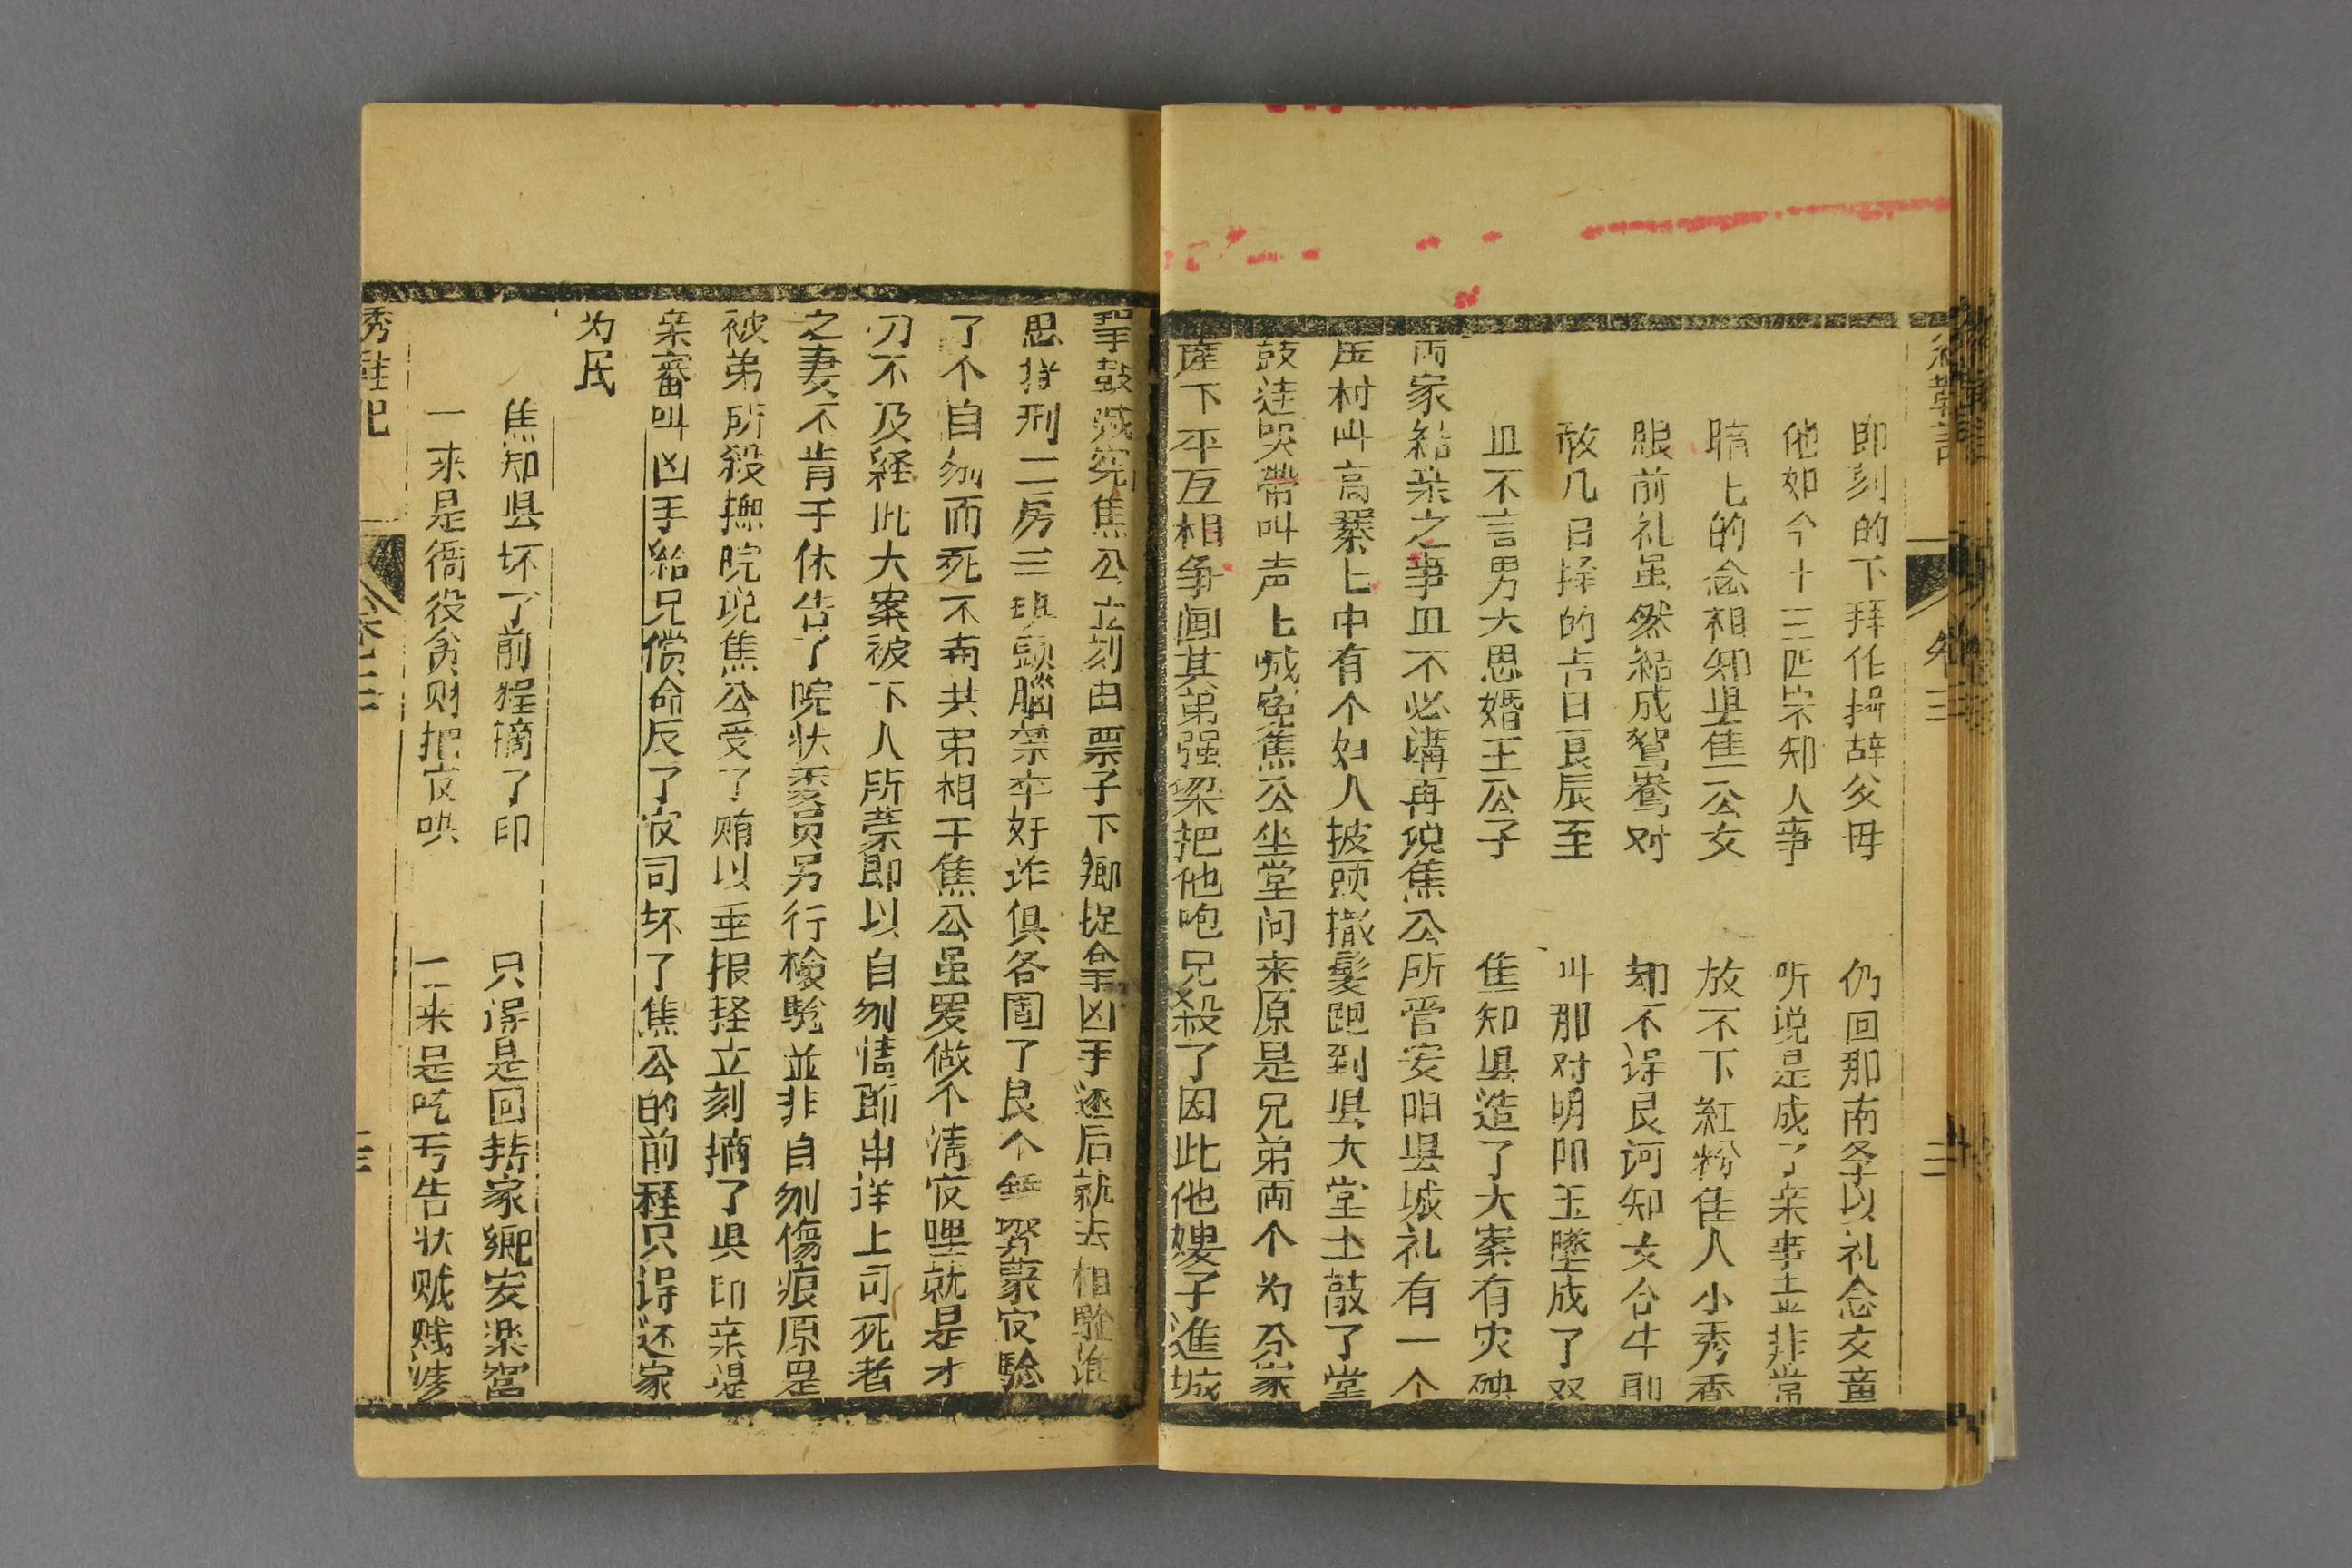 即刻的下拜作揖辞父母 仍回那南学以礼念文童
他如今十三四岁知人事 听说是成了亲事喜非常
暗七的念相知县焦公女 放不下紅粉佳人小秀香
眼前礼虽然結成鴛鴦对 却不得良河知女合牛郎
敢几日择的吉日良辰至 叫那对明阳玉墜成了双
且不言男大思婚王公子 焦知县造了大案有灾殃
両家結亲之事且不必講再说焦公所管安阳县城礼有一个
庄村叫高翠七中有个妇人披頭撒髮跑到县大堂上敲了堂
鼓连哭带叫声七喊冤焦公坐堂问来原是兄弟両个为分家
産下平互相争闹其弟强梁把他咆兄殺了因此他嫂子進城
擊鼓喊冤焦公立刻由票子下鄉捉拿凶手逐后就去相騐谁
思拷刑二房三班頭腦禁卒奸诈俱各圄了良个 蒙官騐
了个自刎而死不与其弟相干焦公虽要做个清官哩就是才
刀不及経此大案被下人所蒙即以自刎情節申详上司死者
之妻不肯干休告了院状委员另行檢騐並非自刎傷痕原是
被弟所殺撫院说焦公受了贿以垂报轻立刻摘了县印亲提
亲審叫凶手給兄償命反了官司坏了焦公的前程只得还家
为民
焦知县坏了前程摘了印 只得是回転家鄉安楽窩
一来是衙役贪财把官哄 二来是吃亏告状贼贱婆
秀鞋记
卷三
三